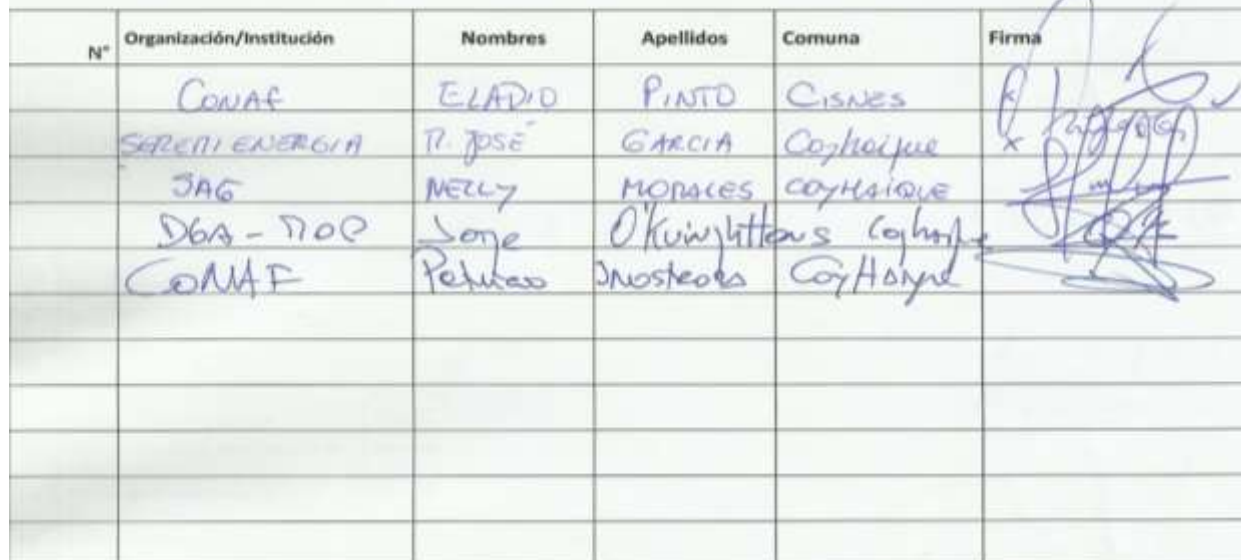 N° Organización/Institución Nombres Apellidos Comuna Firma
CONAF ELADIO PINTO CISNES
SEREMI ENERGIA M. JOSÉ GARCIA Coyhaique
SAG NELLY MORALES COYHAIQUE
DGA - MOP Jorge O'Kuinghttons Coyhaique
CONAF Patricio Inostroza CoyHaique